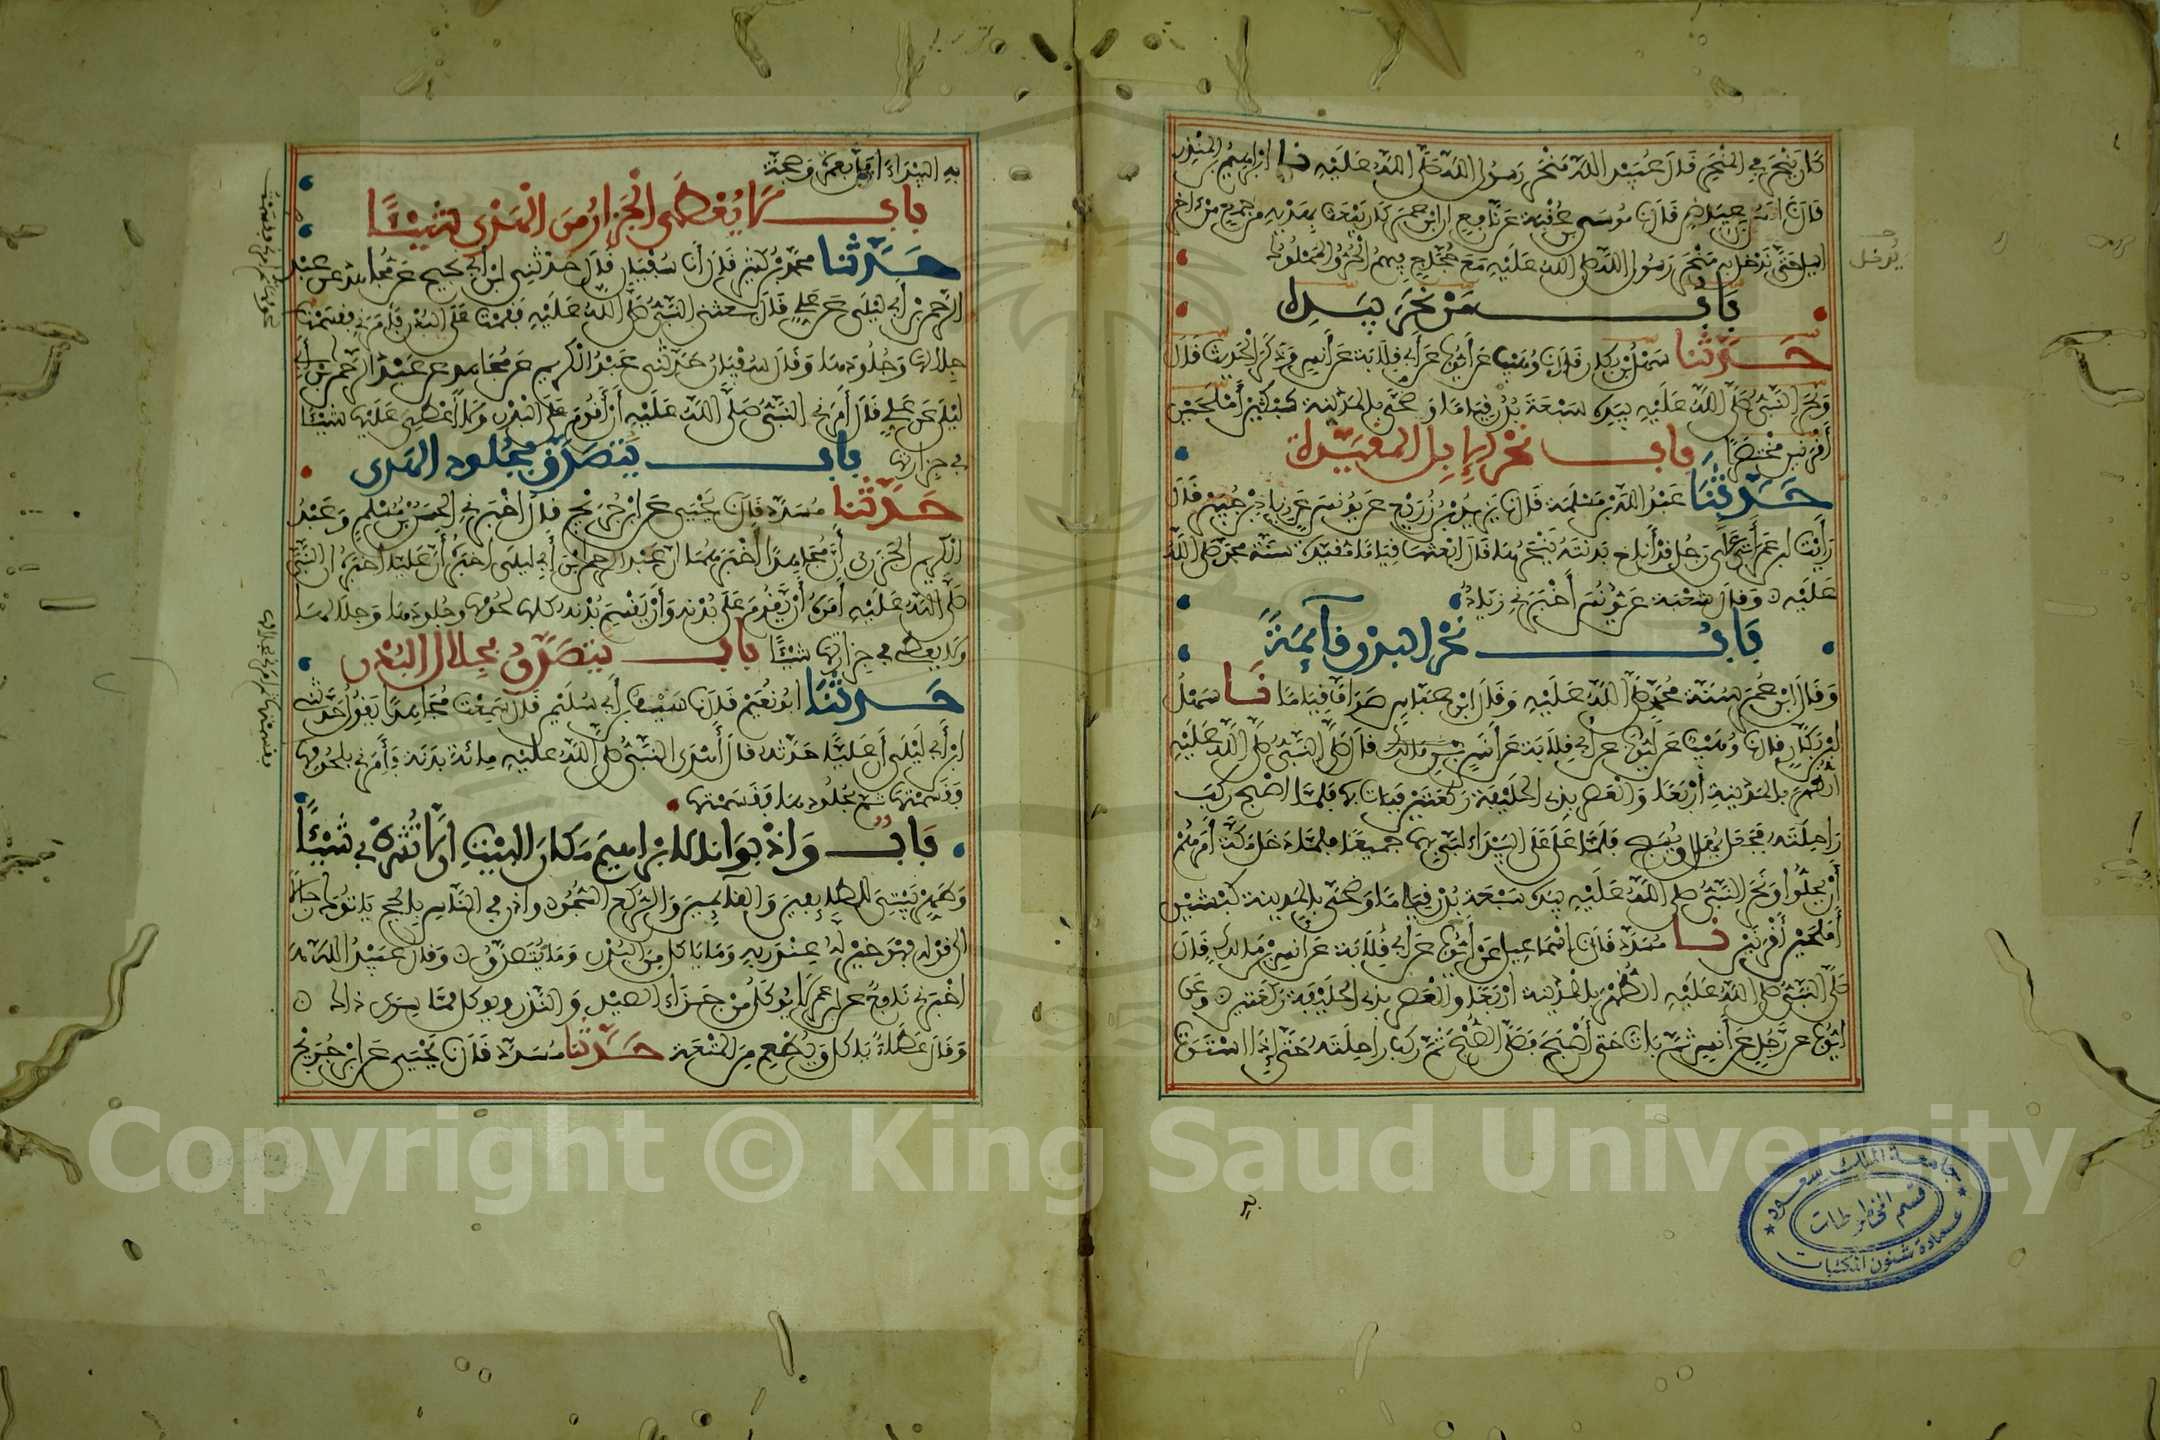 كان ينحر في المنحر قال عبيد الله منحر رسول الله صلى الله عليه نا ابراهيم بن المنذر
قال نا انس بن عياض قال نا موسى بن عقبة عن نافع ان ابن عمر كان يبعث بهديه من جمع من ءاخر
الليل حتى يدخل به منحر رسول الله صلى الله عليه مع حجاج فيهم الحر والمملوك
يدخل
باب من نحر بيده
حدثنا سهل بن بكار قال نا وهيب عن أيوب عن أبي قلابة عن أنس وذكر الحديث قال
ونحر النبي صلى الله عليه بيده سبعة بدن قياما وضحى بالمدينة كبشين أملحين
أقرنين مختصرا باب نحر الإبل المقيدة
حدثنا عبد الله بن مسلمة قال نا يزيد بن زريع عن يونس عن زياد بن جبير قال
رأيت ابن عمر أتى على رجل قد أناخ بدنته ينحرها قال ابعثها قياما مقيدة سنة محمد صلى الله
عليه وقال شعبة عن يونس أخبرني زياد
باب نحر البدن قائمة
وقال ابن عمر سنة محمد صلى الله عليه وقال ابن عباس صواف قياما نا سهل
ابن بكار قال نا وهيب عن أيوب عن أبي قلابة عن أنس بن مالك قال صلى النبي صلى الله عليه
الظهر بالمدينة أربعا والعصر بذي الحليفة ركعتين فبات بها فلما اصبح ركب
راحلته فجعل يهلل ويسبح فلما علا على البيداء لبى بهما جميعا فلما دخل مكة أمرهم
أن يحلوا ونحر النبي صلى الله عليه بيده سبعة بدن قياما وضحى بالمدينة كبشين
أملحين أقرنين نا مسدد قال نا إسماعيل عن أيوب عن أبي قلابة عن أنس بن مالك قال
صلى النبي صلى الله عليه الظهر بالمدينة أربعا والعصر بذي الحليفة ركعتين وعن
ايوب عن رجل عن أنس ثم بات حتى أصبح فصلى الصبح ثم ركب راحلته حتى إذا استوت
به البيداء اهل بعمرة وحجة
باب لا يعطى الجزار من الهدي شيئا
حدثنا محمد بن كثير قال أنا سفيان قال حدثني ابن أبي نجيح عن مجاهد عن عبد
الرحمن بن أبي ليلى عن علي قال بعثني النبي صلى الله عليه فقمت على البدن فأمرني فقسمت
جلالها وجلودها وقال سفيان حدثني عبد الكريم عن مجاهد عن عبد الرحمن بن أبي
ليلى عن علي قال أمرني النبي صلى الله عليه أن أقوم على البدن ولا أعطي عليها شيئا
في جزارتها باب يتصدق بجلود الهدي
حدثنا مسدد قال نا يحيى عن ابن جريج قال اخبرني الحسن بن مسلم وعبد
الكريم الجزري أن مجاهدا أخبرهما ان عبد الرحمن بن أبي ليلى اخبره أن عليا اخبره ان النبي
صلى الله عليه أمره أن يقوم على بدنه وأن يقسم بدنه كلها لحومها وجلودها وجلالها
ولا يعطي في جزارتها شيئا باب يتصدق بجلال البدن
حدثنا ابو نعيم قال نا سيف بن أبي سليمن قال سمعت مجاهدا يقول حدثني
ابن أبي ليلى أن عليا حدثه قال أهدى النبي صلى الله عليه مائة بدنة فأمرني بلحومها
فقسمتها ثم بجلودها فقسمتها
باب واذ بوانا لابراهيم مكان البيت ان لا تشرك بي شيئا
وطهر بيتي للطايفين والقايمين والركع السجود واذن في الناس بالحج ياتوك رجالا
الى قوله فهو خير له عند ربه وما ياكل من البدن وما يتصدق وقال عبيد الله
اخبرني نافع عن ابن عمر لا يوكل من جزاء الصيد والنذر ويوكل مما سوى ذالك
وقال عطاء ياكل ويطعم من المتعة حدثنا مسدد قال نا يحيى عن ابن جريج
جامعة الملك سعود
قسم المخطوطات
عمادة شئون المكتبات
Copyright © King Saud University